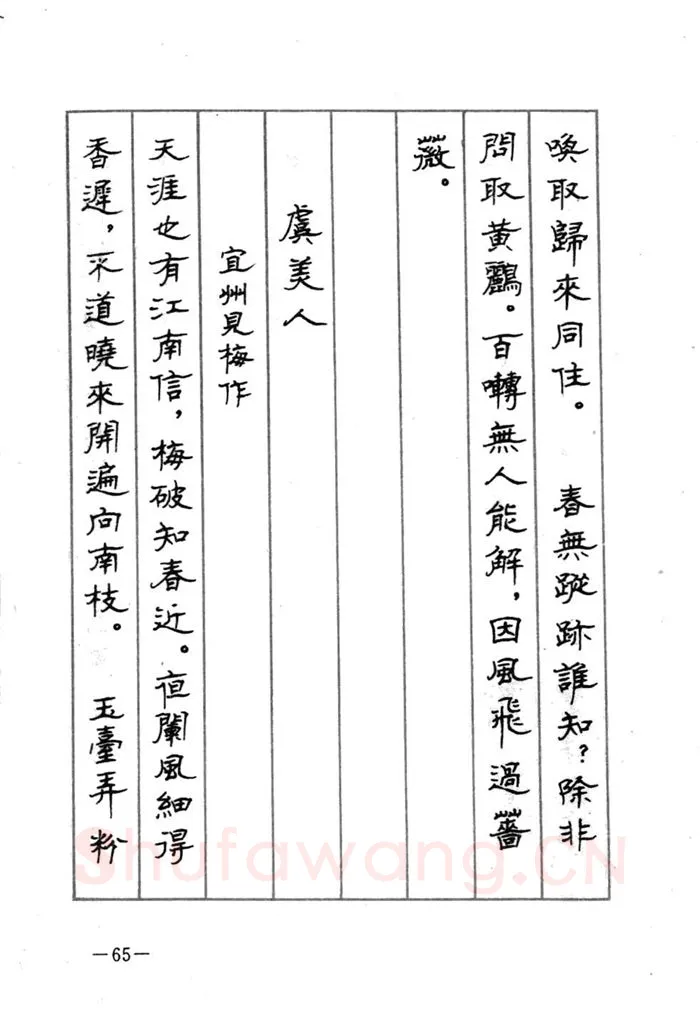 喚取歸來同住。　春無蹤跡誰知？除非
問取黃鸝。百囀無人能解，因風飛過薔
薇。
虞美人
宜州見梅作
天涯也有江南信，梅破知春近。夜闌風細得
香遲，不道曉來開遍向南枝。　玉臺弄粉
—65—
Shufawang.CN